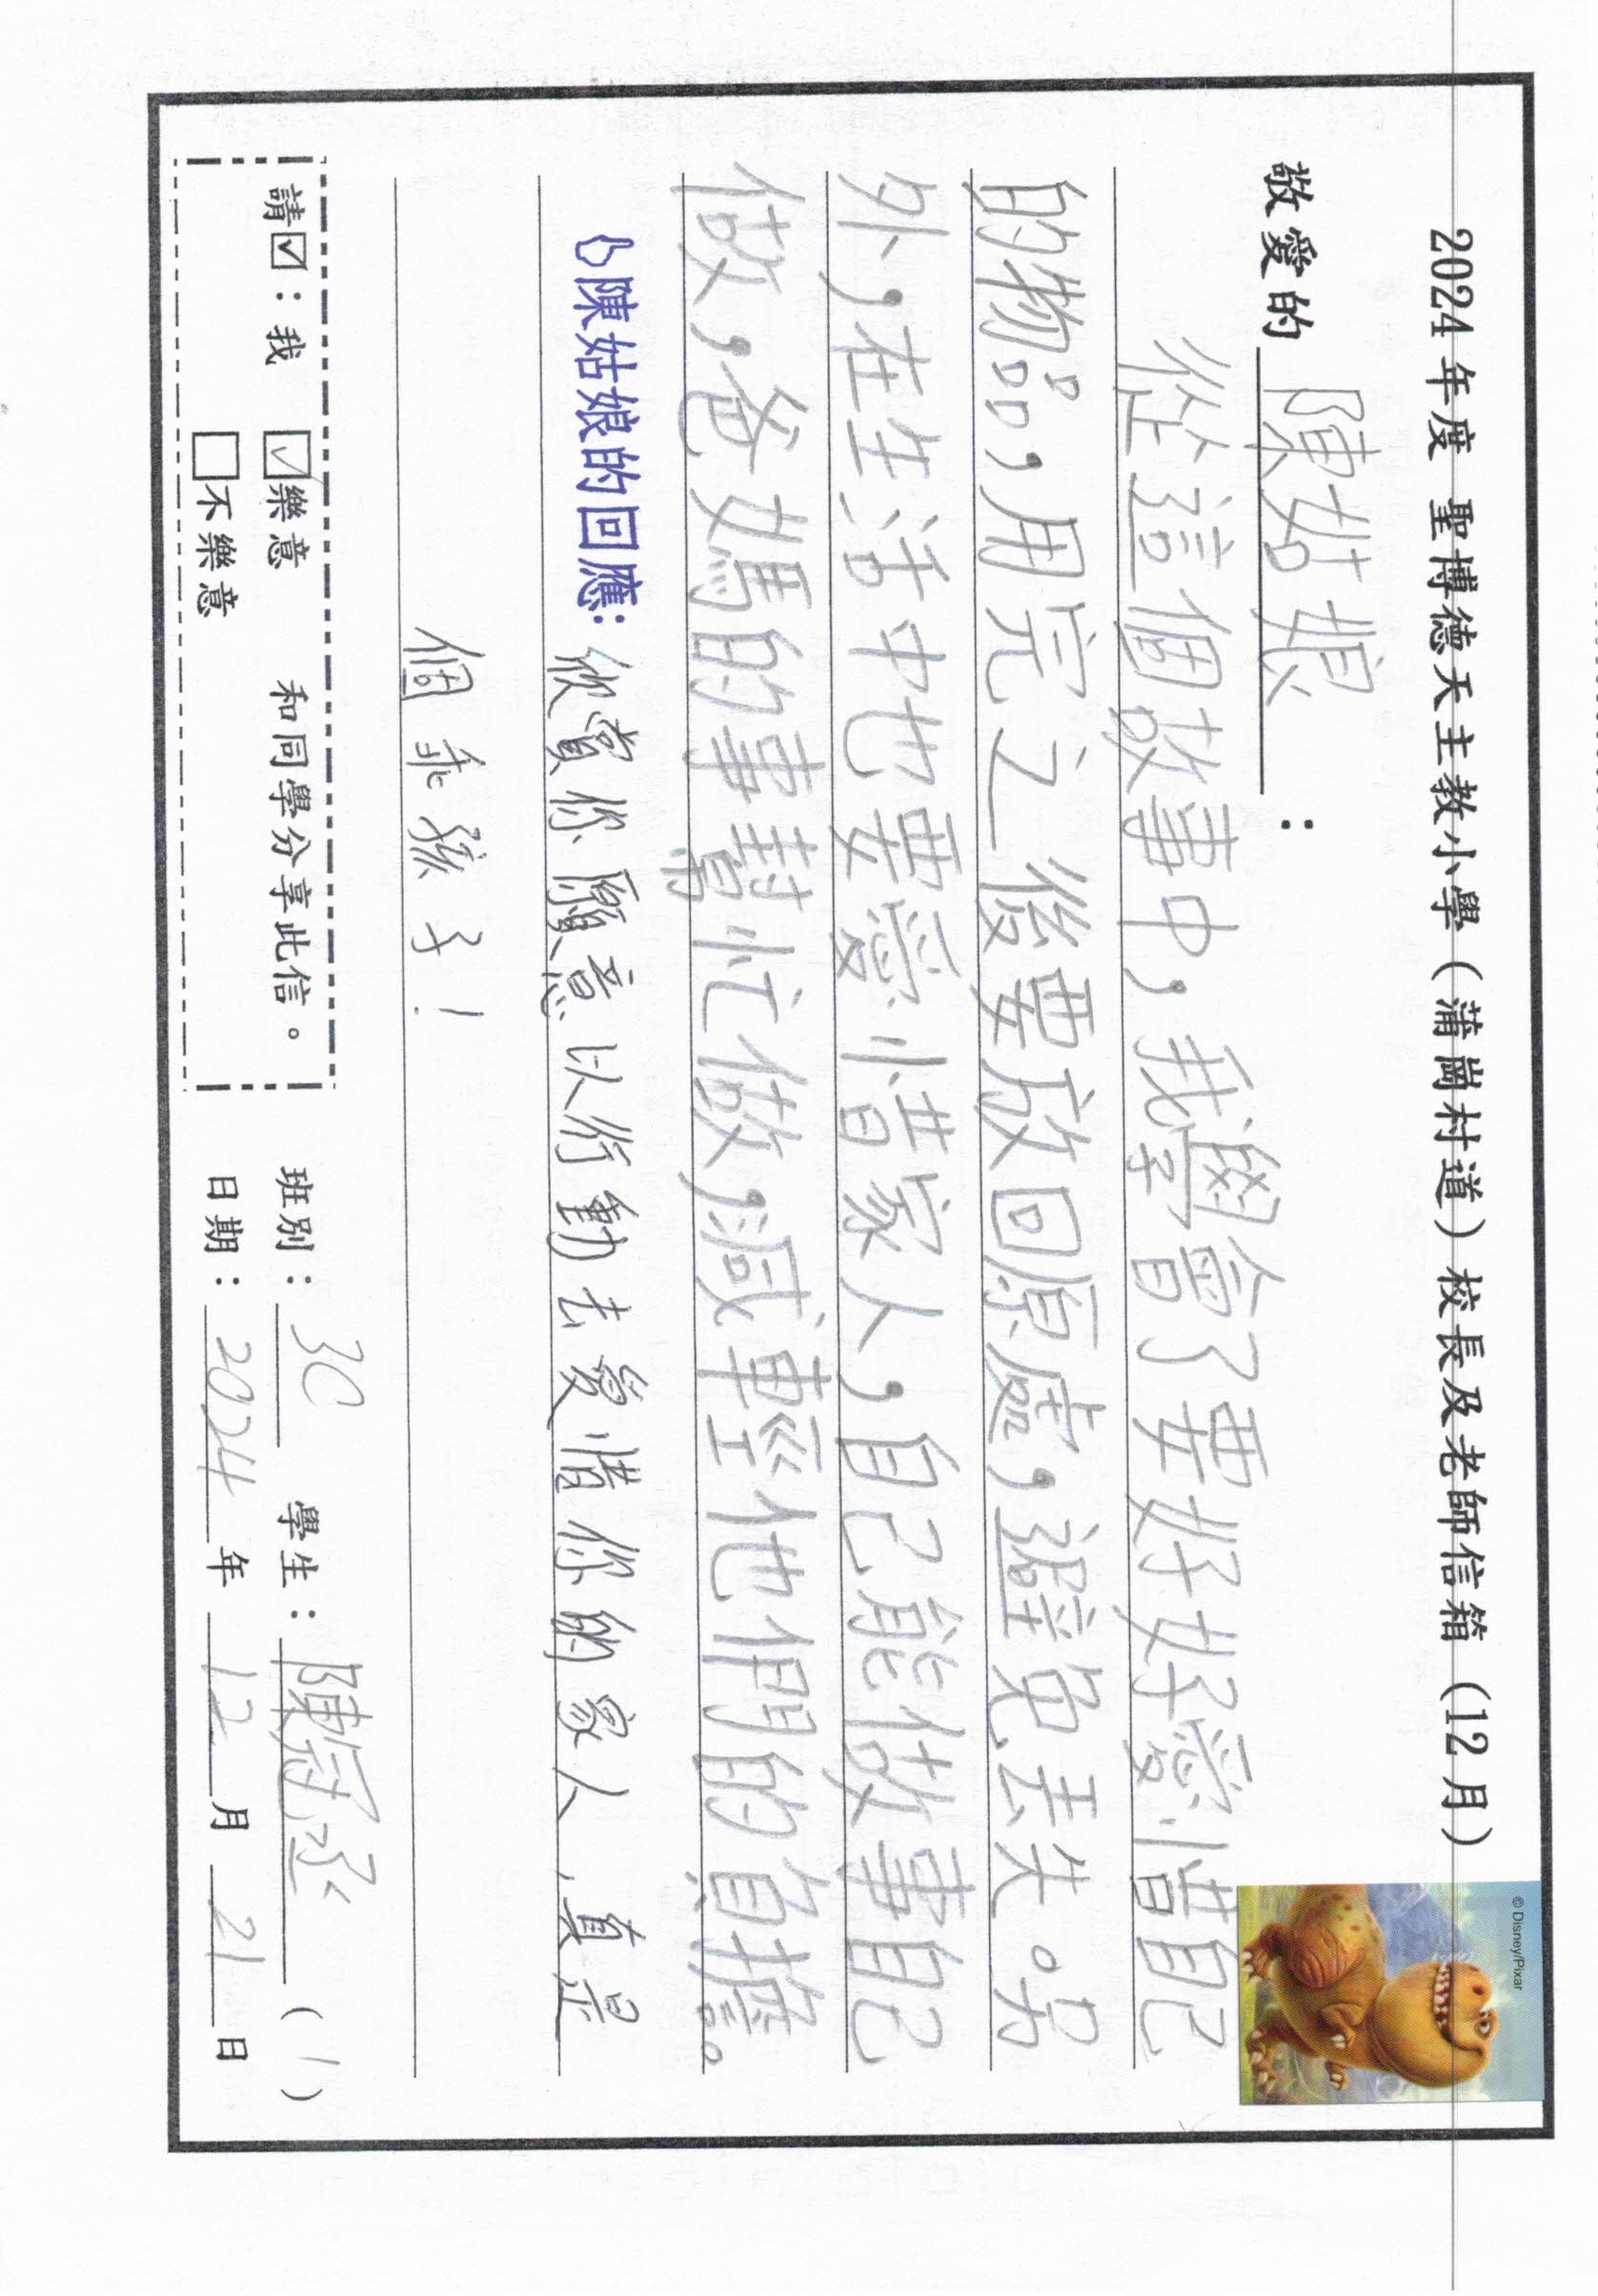 2024年度 聖博德天主教小學(蒲崗村道)校長及老師信箱(12月)
© Disney/Pixar
敬愛的 陳姑娘：
從這個故事中，我學會了要好好愛惜自己
的物品，用完之後要放回原處，避免丟失。另
外，在生活中也要愛惜家人，自己能做事自己
做，爸媽的事幫忙做，減輕他們的負擔。
陳姑娘的回應：欣賞你願意以行動去愛惜你的家人，真是
個乖孩子！
請☑：我 ☑樂意 和同學分享此信。
□不樂意
班別：3C 學生：陳冠丞 (1)
日期：2024年12月21日